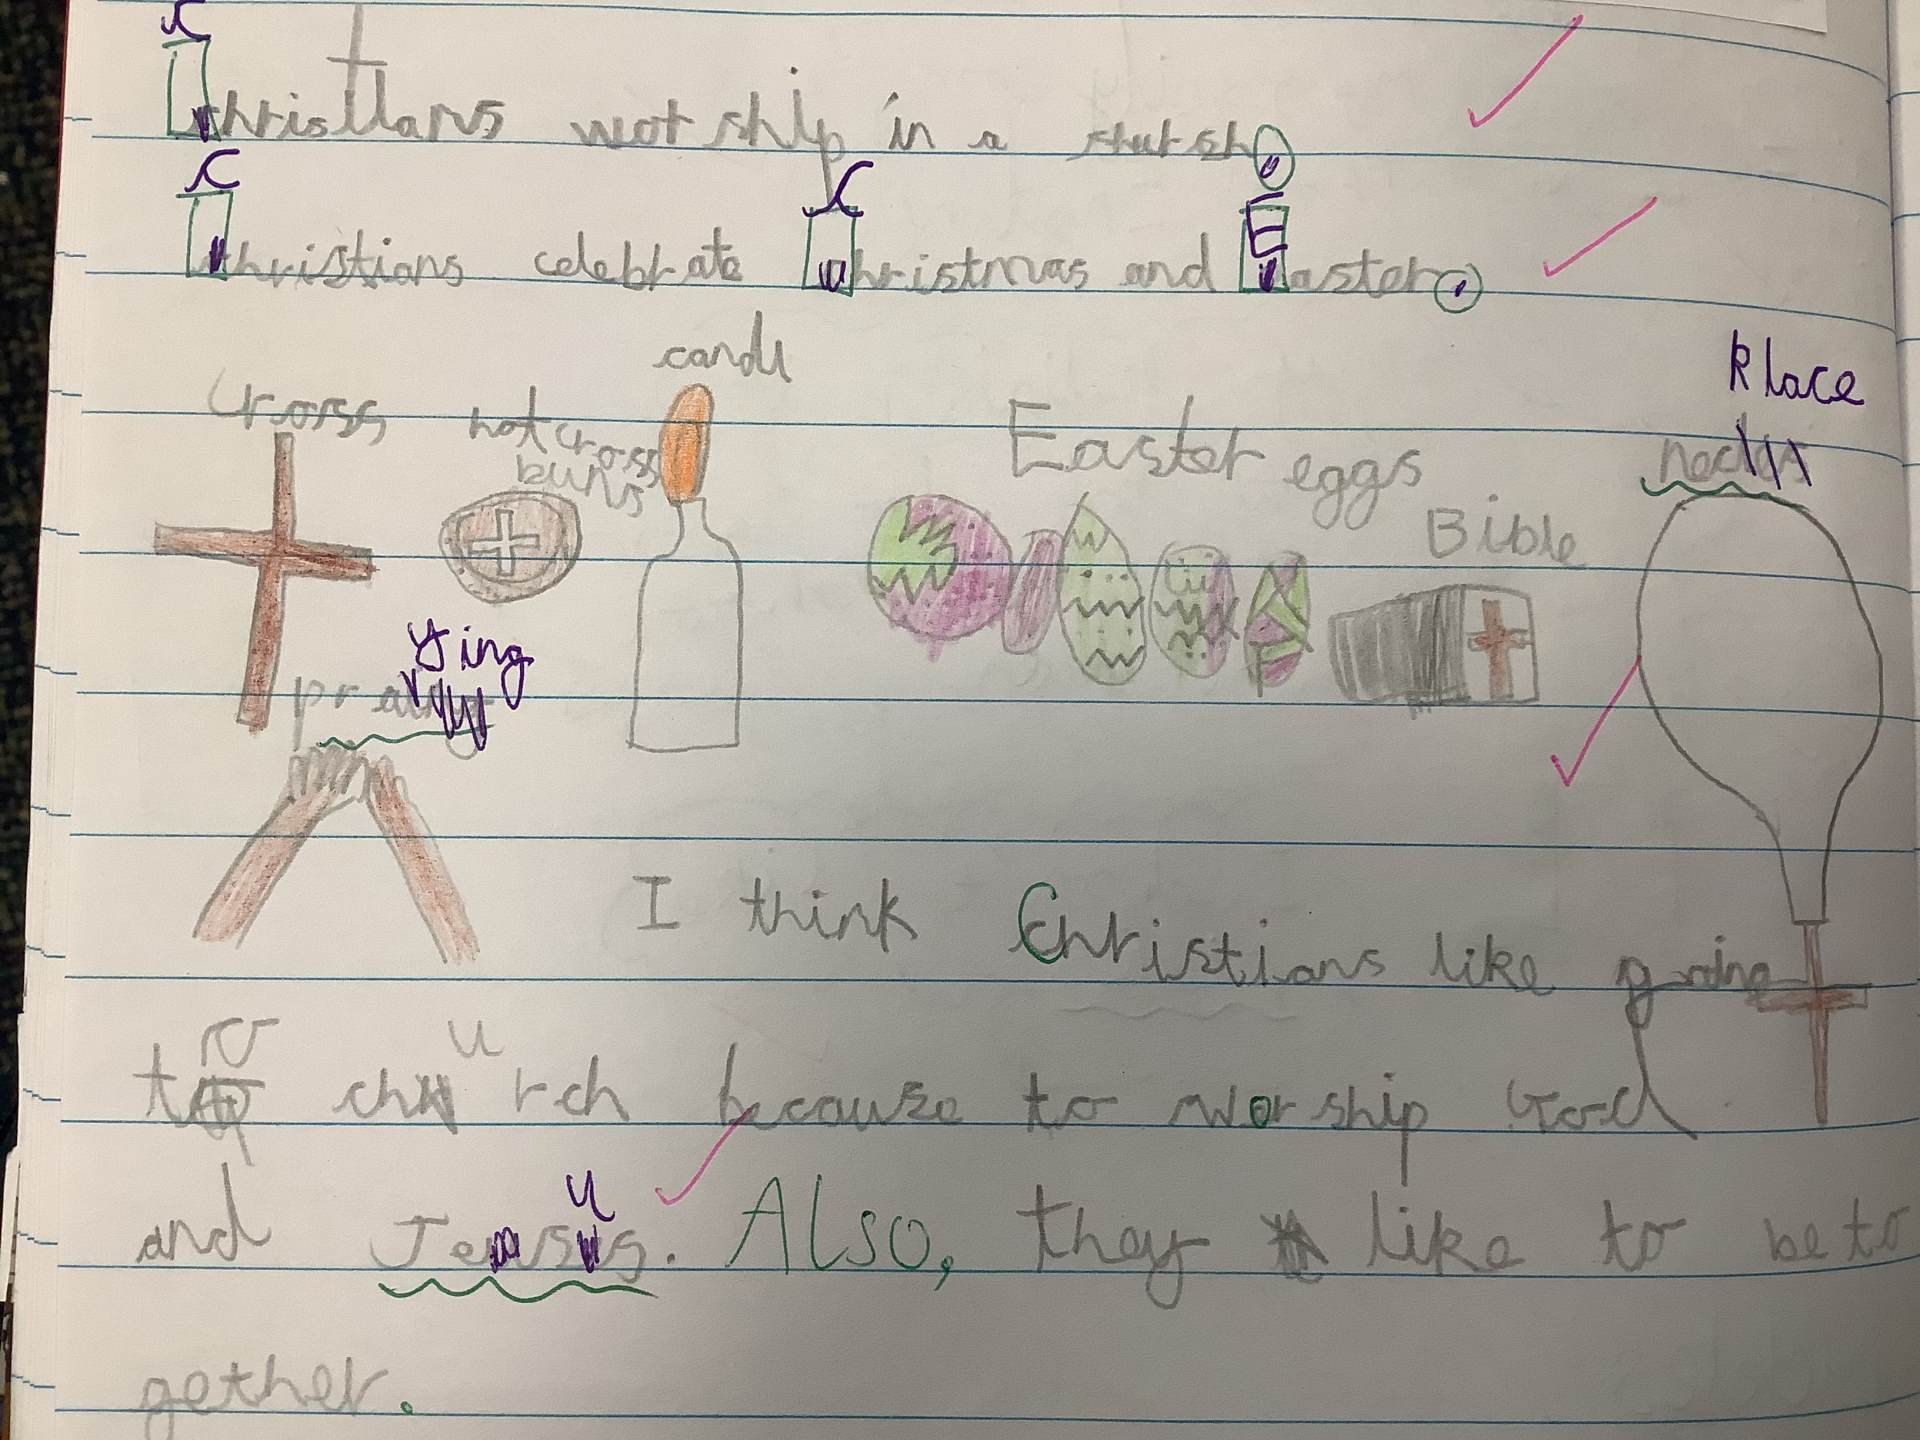 Christians worship in a shursh.
Christians celebrate Christmas and Easter.
candl
klace
Cross
hot cross
buns
Easter eggs
neck
Bible
ying
pra
I think Christians like going
to church because to worship God
and Jesus. Also, they like to be to
gether.